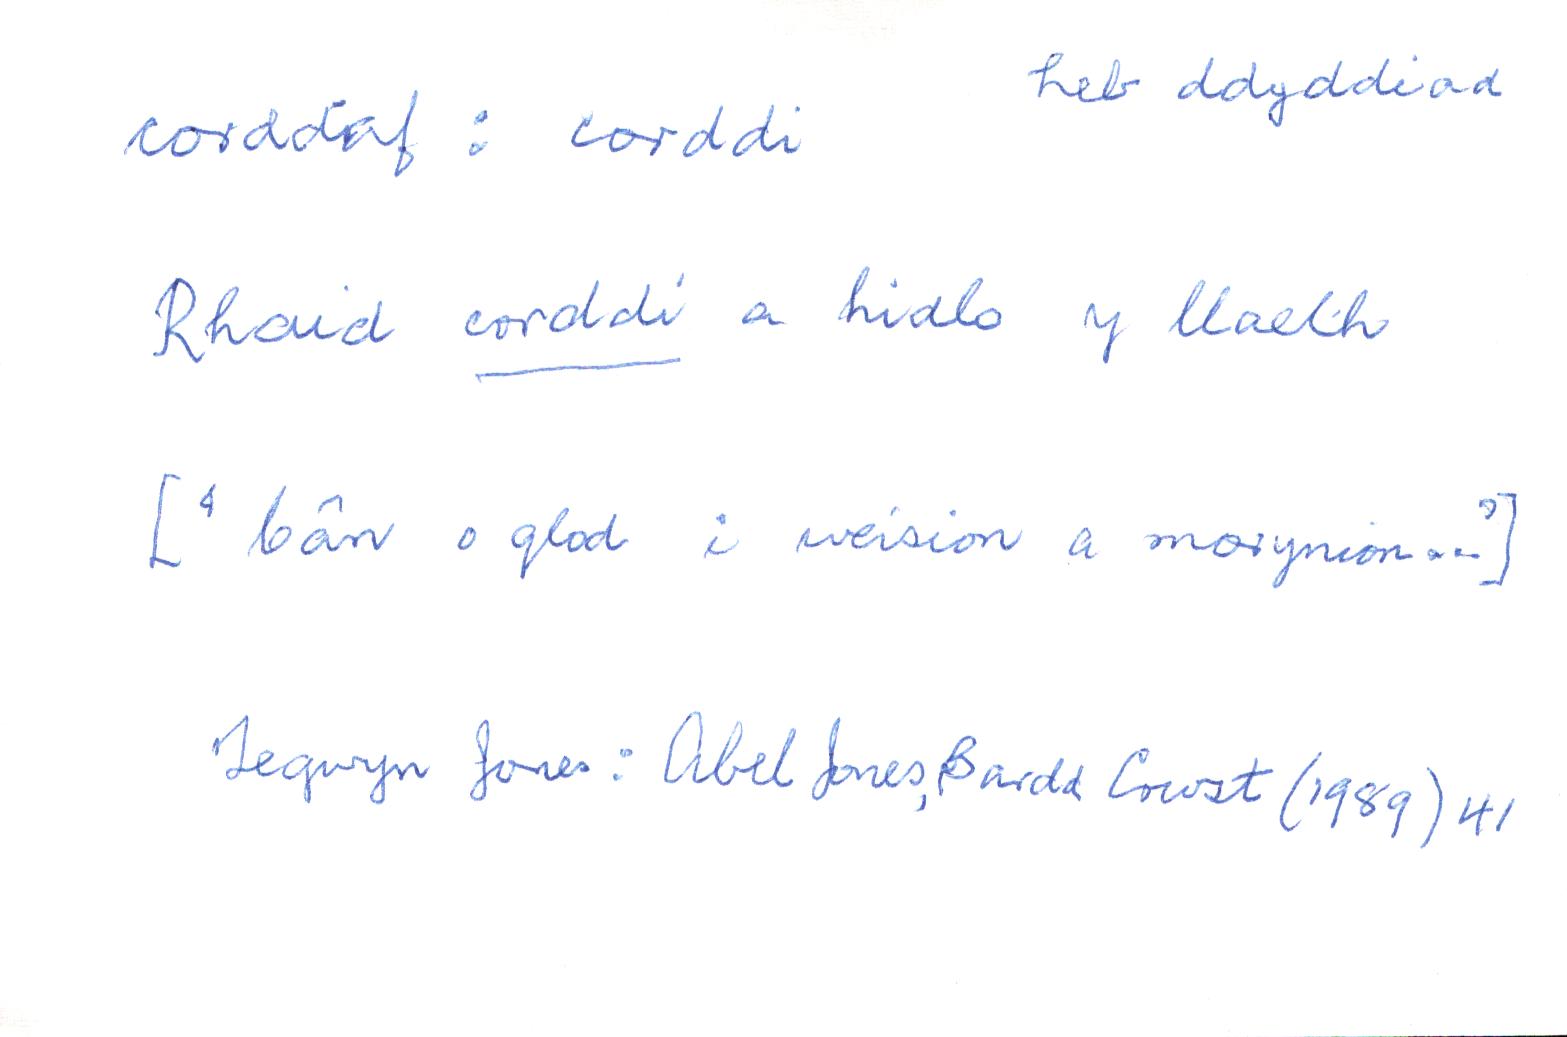 heb ddyddiad
corddaf : corddi
Rhaid corddi a hidlo y llaeth
[‘Cân o glod i weision a morynion...’]
Tegwyn Jones: Abel Jones, Bardd Crwst (1989) 41